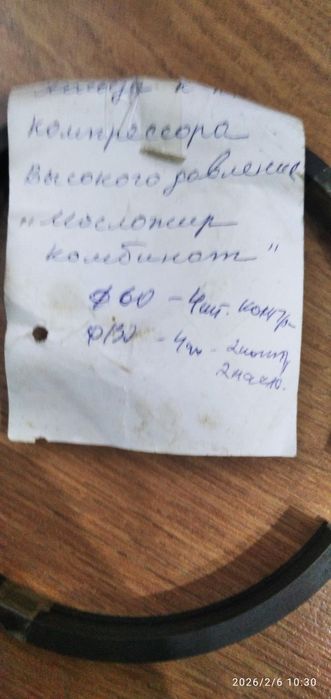 компрессора
высокого давления
"Масложир
комбинат"
ø60 - 4шт. компр
ø132 - 4шт - 2компр
2масл.
2026/2/6 10:30